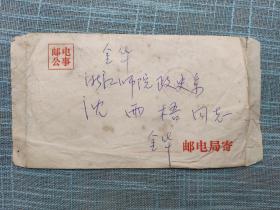 邮电
公事
金华
浙江师院政史系
沈雨梧同志
金华
邮电局寄